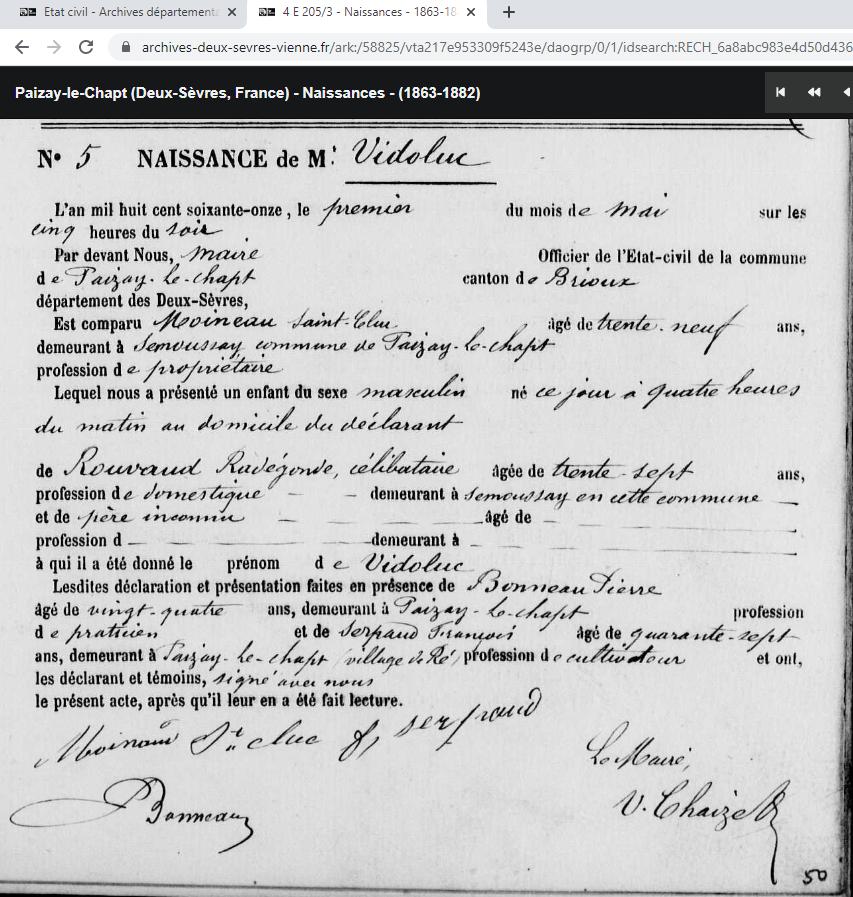 Etat civil - Archives départementa
4 E 205/3 - Naissances - 1863-18
archives-deux-sevres-vienne.fr/ark:/58825/vta217e953309f5243e/daogrp/0/1/idsearch:RECH_6a8abc983e4d50d436
Paizay-le-Chapt (Deux-Sèvres, France) - Naissances - (1863-1882)
N° 5 NAISSANCE de M. Vidoluc
L'an mil huit cent soixante-onze, le premier du mois de mai sur les
cinq heures du soir
Par devant Nous, maire Officier de l'Etat-civil de la commune
de Paizay-le-chapt canton de Brioux
département des Deux-Sèvres,
Est comparu Moineau Saint-Cluc âgé de trente-neuf ans,
demeurant à Semoussay commune de Paizay-le-chapt
profession de propriétaire
Lequel nous a présenté un enfant du sexe masculin né ce jour à quatre heures
du matin au domicile du déclarant
de Rouvaud Radégonde, célibataire âgée de trente-sept ans,
profession de domestique demeurant à Semoussay en cette commune
et de père inconnu âgé de
profession d demeurant à
à qui il a été donné le prénom de Vidoluc
Lesdites déclaration et présentation faites en présence de Bonneau Pierre
âgé de vingt-quatre ans, demeurant à Paizay-le-chapt profession
de praticien et de Serpaud François âgé de quarante-sept
ans, demeurant à Paizay-le-chapt (village de Ré) profession de cultivateur et ont,
les déclarant et témoins, signé avec nous
le présent acte, après qu'il leur en a été fait lecture.
Moineau St cluc f, serpaud
Le Maire,
Bonneau
V. Chaize
50